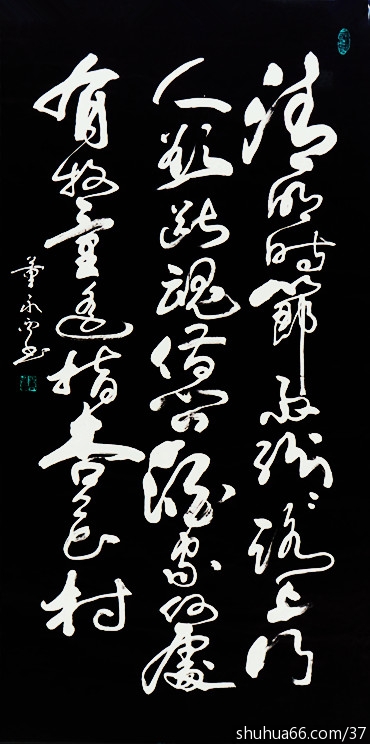 清明時節雨紛紛路上行
人欲断魂借问酒家何處
有牧童遥指杏花村
董永书
shuhua66.com/37